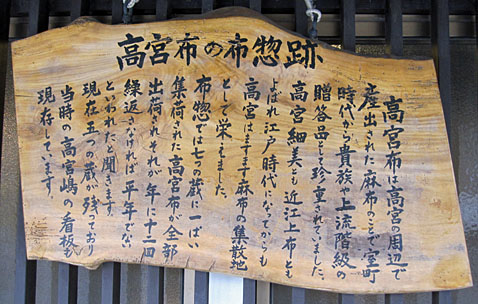 高宮布の布惣跡
高宮布は高宮の周辺で
産出された麻布のことで室町
時代から貴族や上流階級の
贈答品として珍重されていました
高宮細美とも近江上布とも
よばれ江戸時代になってからも
高宮はますます麻布の集散地
として栄えました。
布惣では七つの蔵に一ぱい
集荷された高宮布が全部
出荷されそれが年に十二回
繰返さなければ平年でな
いといわれたと聞きます。
現在五つの蔵が残っており
当時の「高宮嶋」の看板も
現存しています。